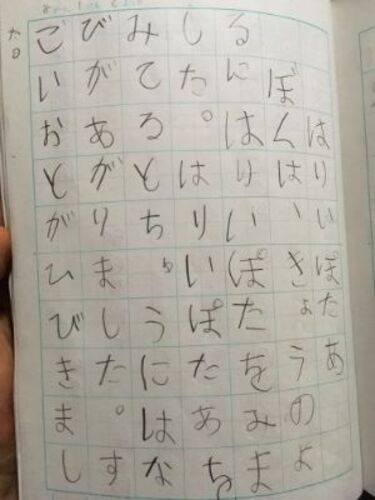 はりいぽたあ
ぼくは、きょうのよ
るにはりいぽたをみま
した。はりいぽたあを
みてるとちゅうにはな
びがあがりました。す
ごいおとがひびきまし